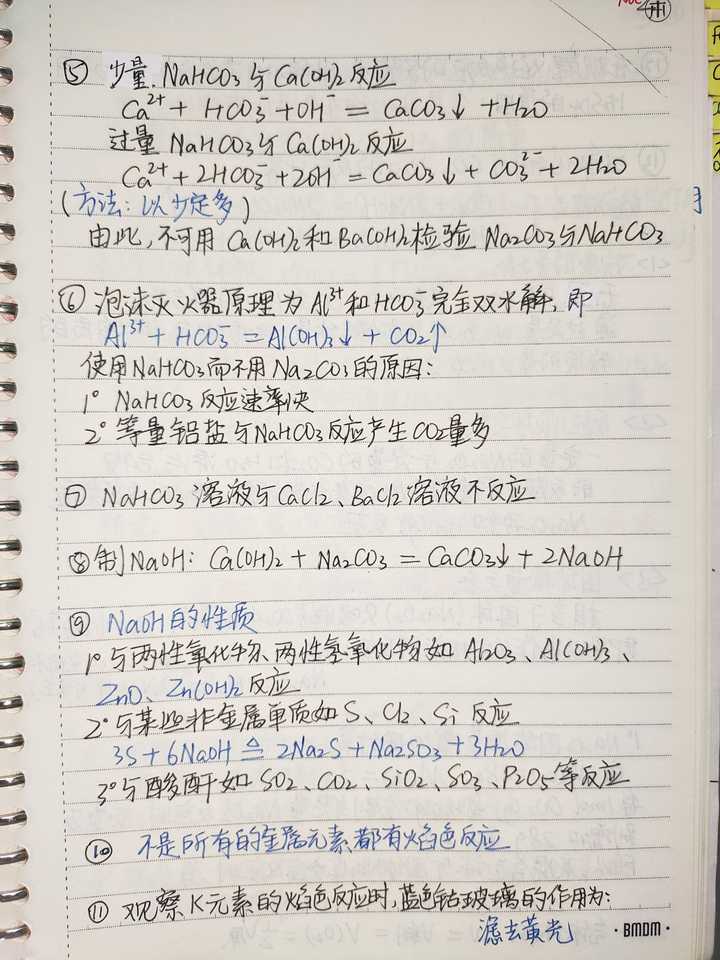 ⑤ 少量 NaHCO₃与Ca(OH)₂反应
Ca²⁺ + HCO₃⁻ + OH⁻ = CaCO₃↓ + H₂O
过量 NaHCO₃与Ca(OH)₂反应
Ca²⁺ + 2HCO₃⁻ + 2OH⁻ = CaCO₃↓ + CO₃²⁻ + 2H₂O
(方法：以少定多)
由此，不可用 Ca(OH)₂和Ba(OH)₂检验 Na₂CO₃与NaHCO₃
⑥ 泡沫灭火器原理为Al³⁺和HCO₃⁻完全双水解，即
Al³⁺ + HCO₃⁻ = Al(OH)₃↓ + CO₂↑
使用NaHCO₃而不用Na₂CO₃的原因：
1° NaHCO₃反应速率快
2° 等量铝盐与NaHCO₃反应产生CO₂量多
⑦ NaHCO₃溶液与CaCl₂、BaCl₂溶液不反应
⑧ 制NaOH：Ca(OH)₂ + Na₂CO₃ = CaCO₃↓ + 2NaOH
⑨ NaOH的性质
1° 与两性氧化物、两性氢氧化物如 Al₂O₃、Al(OH)₃、
ZnO、Zn(OH)₂反应
2° 与某些非金属单质如S、Cl₂、Si 反应
3S + 6NaOH ≜ 2Na₂S + Na₂SO₃ + 3H₂O
3° 与酸酐如SO₂、CO₂、SiO₂、SO₃、P₂O₅等反应
⑩ 不是所有的金属元素都有焰色反应
⑪ 观察K元素的焰色反应时，蓝色钴玻璃的作用为：
滤去黄光
·BMDM·